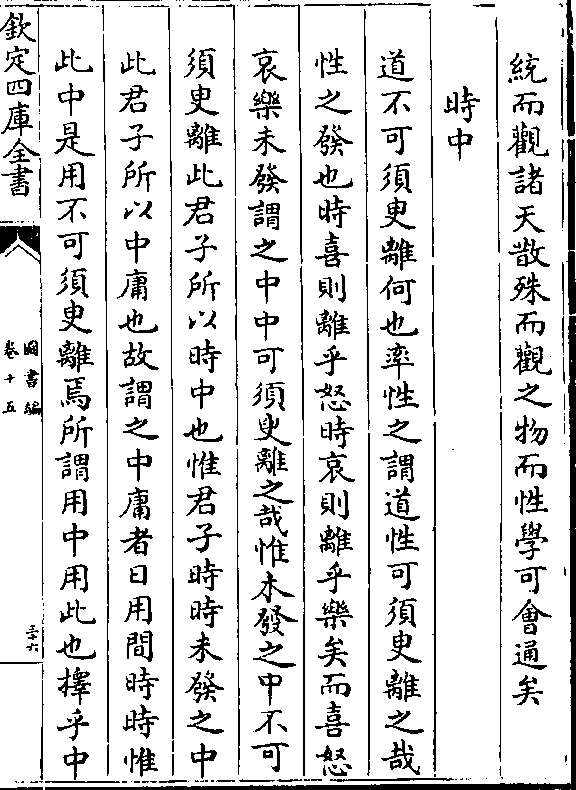 統而觀諸天散殊而觀之物而性學可會通矣
時中
道不可須臾離何也率性之謂道性可須臾離之哉
性之發也時喜則離乎怒時哀則離乎樂矣而喜怒
哀樂未發謂之中中可須臾離之哉惟未發之中不可
須臾離此君子所以時中也惟君子時時未發之中
此君子所以中庸也故謂之中庸者日用間時時惟
此中是用不可須臾離焉所謂用中用此也擇乎中
欽定四庫全書
圖書編
卷十五
三十六